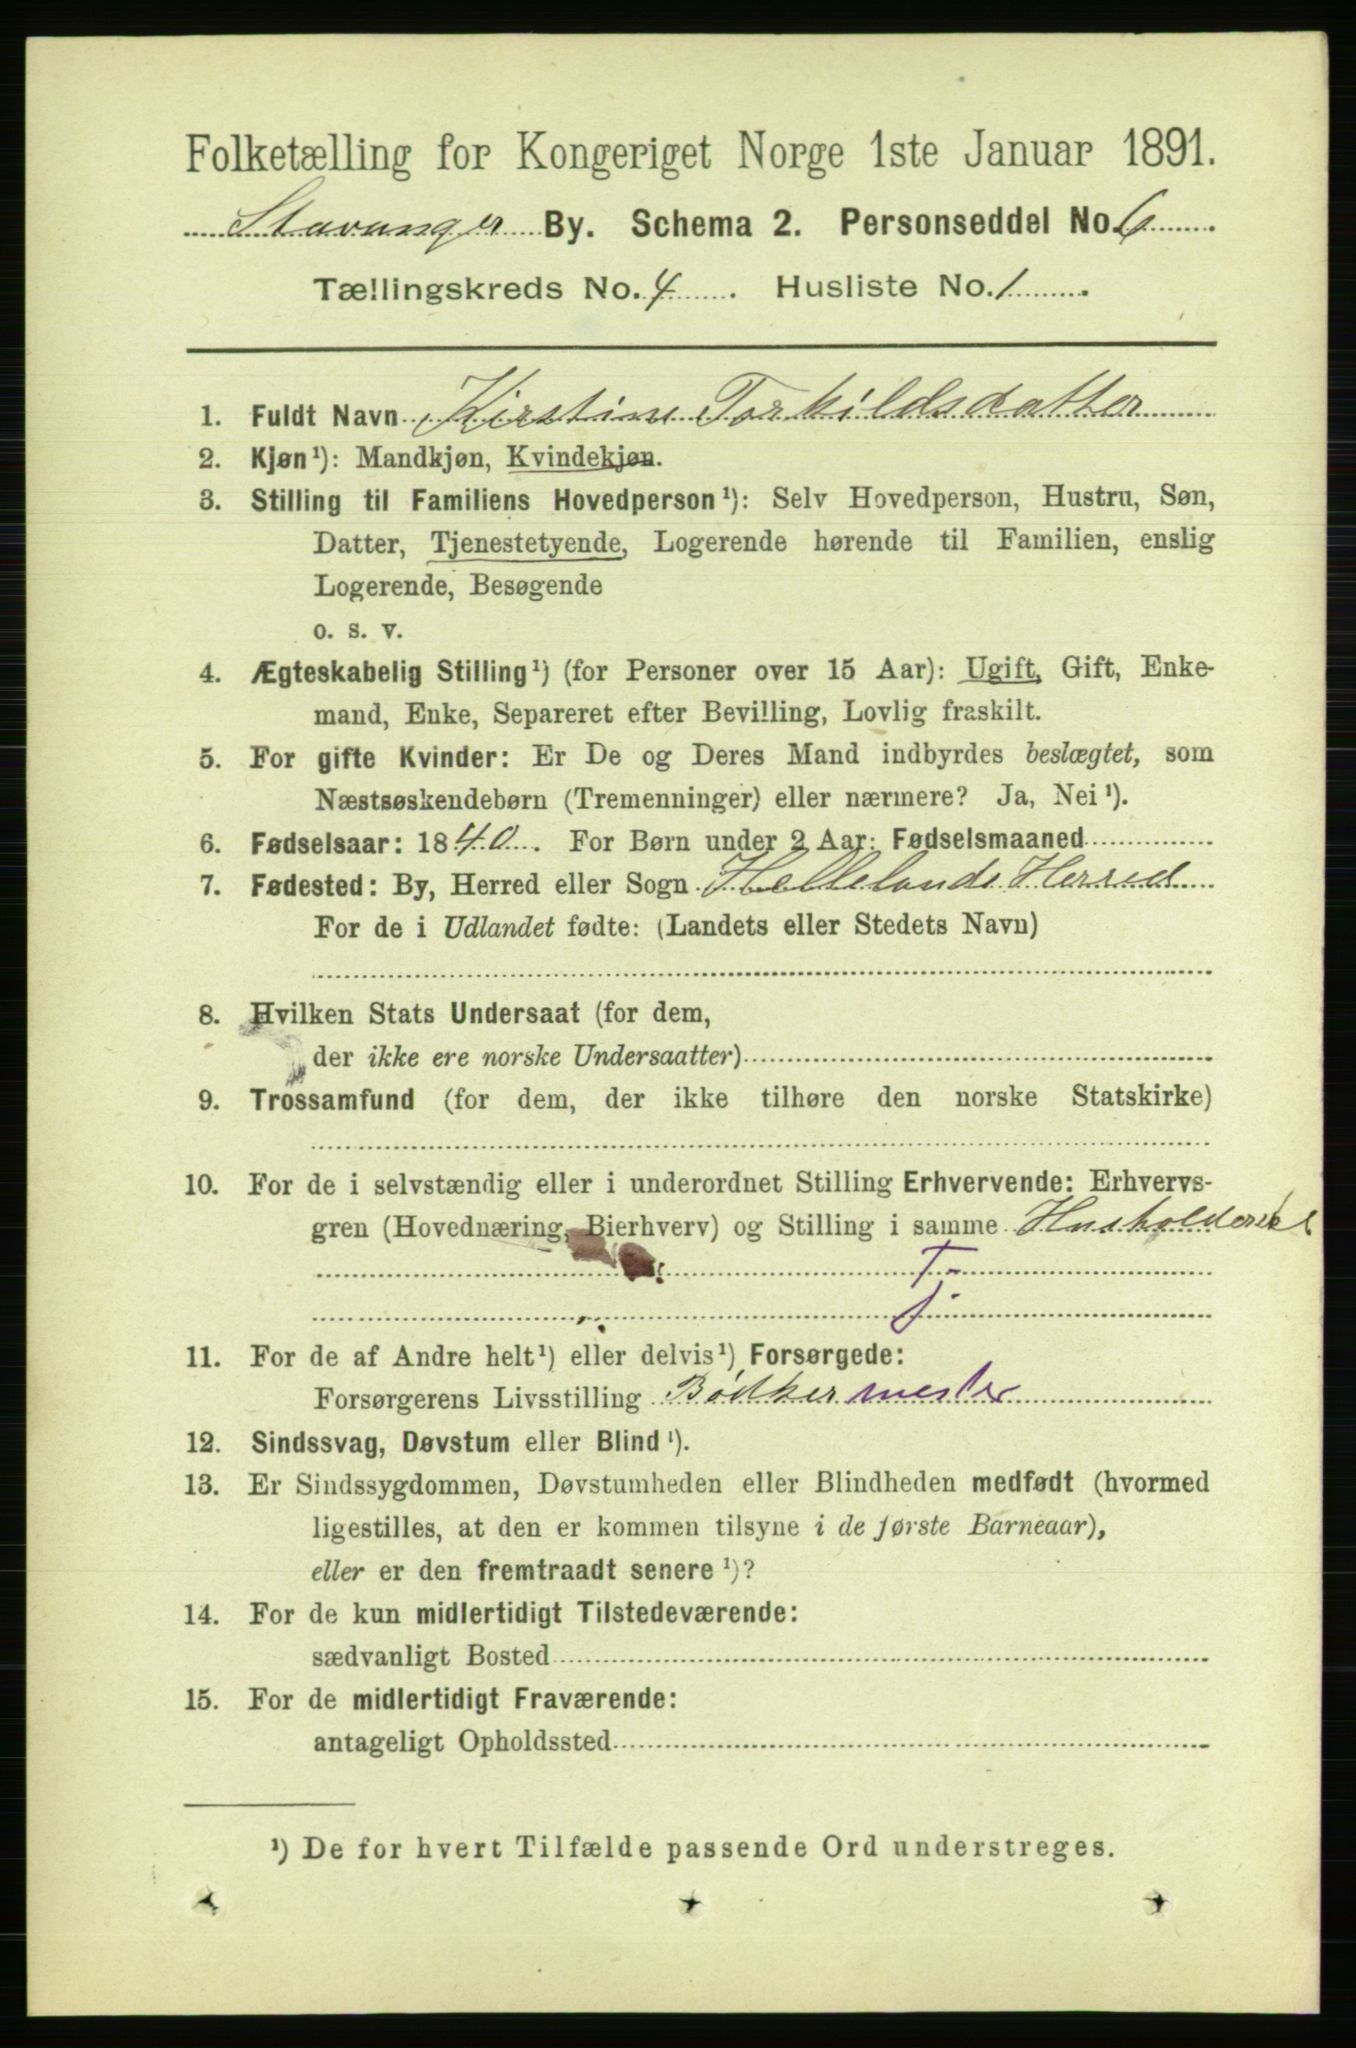 Folketælling for Kongeriget Norge 1ste Januar 1891.
Stavanger By. Schema 2. Personseddel No. 6
Tællingskreds No. 4. Husliste No. 1.
1. Fuldt Navn Kirstine Torkildsdatter
2. Kjøn¹): Mandkjøn, Kvindekjøn.
3. Stilling til Familiens Hovedperson¹): Selv Hovedperson, Hustru, Søn,
Datter, Tjenestetyende, Logerende hørende til Familien, enslig
Logerende, Besøgende
o. s. v.
4. Ægteskabelig Stilling¹) (for Personer over 15 Aar): Ugift, Gift, Enke-
mand, Enke, Separeret efter Bevilling, Lovlig fraskilt.
5. For gifte Kvinder: Er De og Deres Mand indbyrdes beslægtet, som
Næstsøskendebørn (Tremenninger) eller nærmere? Ja, Nei¹).
6. Fødselsaar: 1840. For Børn under 2 Aar: Fødselsmaaned
7. Fødested: By, Herred eller Sogn Hellelands Herred
For de i Udlandet fødte: (Landets eller Stedets Navn)
8. Hvilken Stats Undersaat (for dem,
der ikke ere norske Undersaatter)
9. Trossamfund (for dem, der ikke tilhøre den norske Statskirke)
10. For de i selvstændig eller i underordnet Stilling Erhvervende: Erhvervs-
gren (Hovednæring, Bierhverv) og Stilling i samme
T-
j-
11. For de af Andre helt¹) eller delvis¹) Forsørgede:
Forsørgerens Livsstilling Bødkermester
12. Sindssvag, Døvstum eller Blind¹).
13. Er Sindssygdommen, Døvstumheden eller Blindheden medfødt (hvormed
ligestilles, at den er kommen tilsyne i de første Barneaar),
eller er den fremtraadt senere¹)?
14. For de kun midlertidigt Tilstedeværende:
sædvanligt Bosted
15. For de midlertidigt Fraværende:
antageligt Opholdssted
¹) De for hvert Tilfælde passende Ord understreges.